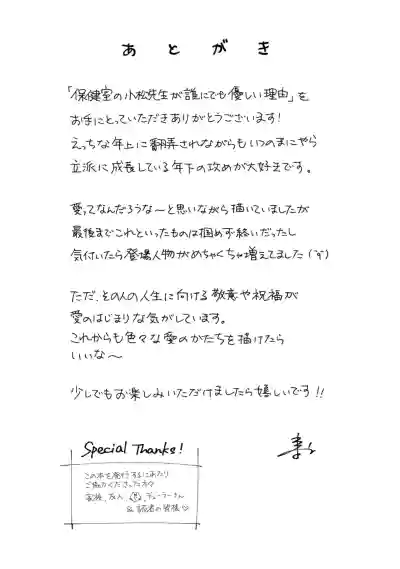 あとがき
「保健室の小松先生が誰にでも優しい理由」を
お手にとっていただきありがとうございます!
えっちな年上に翻弄されながらもいつのまにやら
立派に成長している年下の攻めが大好きです。
愛ってなんだろうな〜と思いながら描いていましたが
最後までこれといったものは掴めず終いだったし
気付いたら登場人物がめちゃくちゃ増えてました
ただ、その人の人生に向ける敬意や祝福が
愛のはじまりな気がしています。
これからも色々な愛のかたちを描けたら
いいな〜
少しでもお楽しみいただけましたら嬉しいです!!
Special Thanks!
この本を発行するにあたり
ご協力くださった方々
家族、友人、担、デューラーさん
&読者の皆様♡